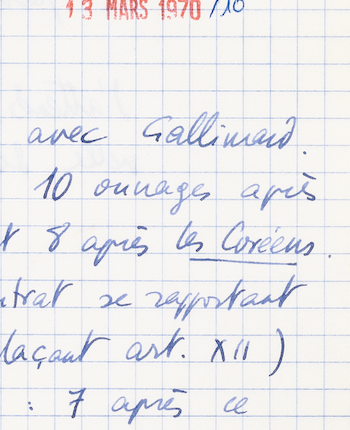 13 MARS 1970 /10
avec Gallimard.
10 ouvrages après
t 8 après les Coréens.
ntrat se rapportant
laçant art. XII)
: 7 après ce